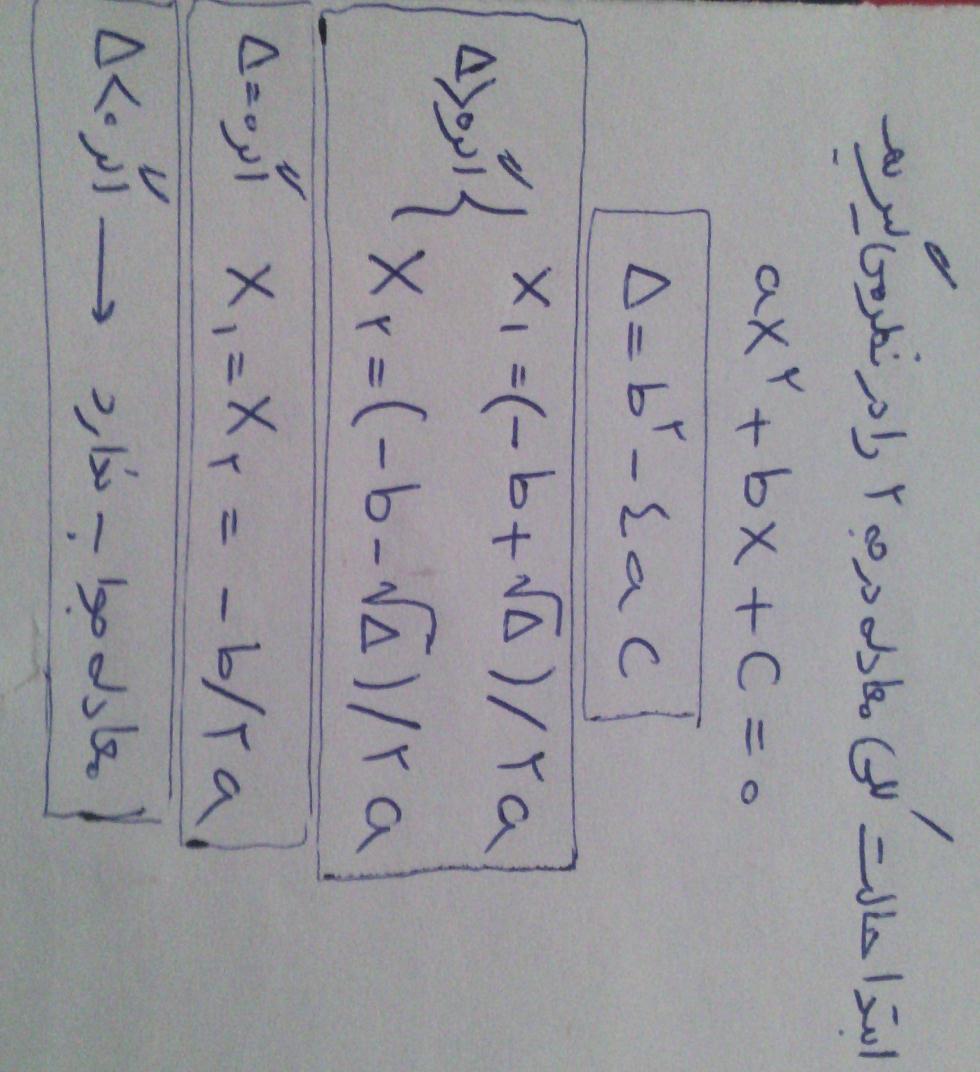 ابتدا حالت کلی معادله درجه ۲ را در نظر می‌گیریم
ax۲ + bx + c = ۰
Δ = b۲ - ۴ac
اگر Δ>۰ { x۱ = (-b+√Δ)/۲a
x۲ = (-b-√Δ)/۲a
اگر Δ=۰ x۱ = x۲ = -b/۲a
اگر Δ<۰ → معادله جواب ندارد